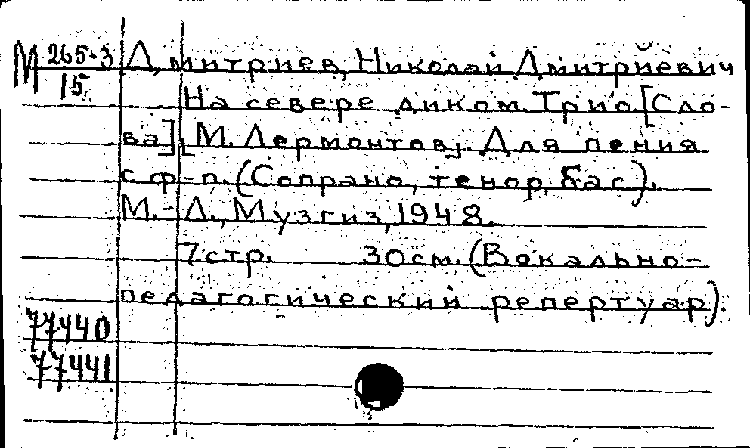 М 265-3 Дмитриев, Николай Дмитриевич
15 На севере диком. Трио [Сло-
ва] [М. Лермонтов]. Для пения
с ф-п. (Сопрано, тенор, бас).
М.-Л., Музгиз, 1948.
7 стр. 30 см. (Вокально-
педагогический репертуар).
77440
77441